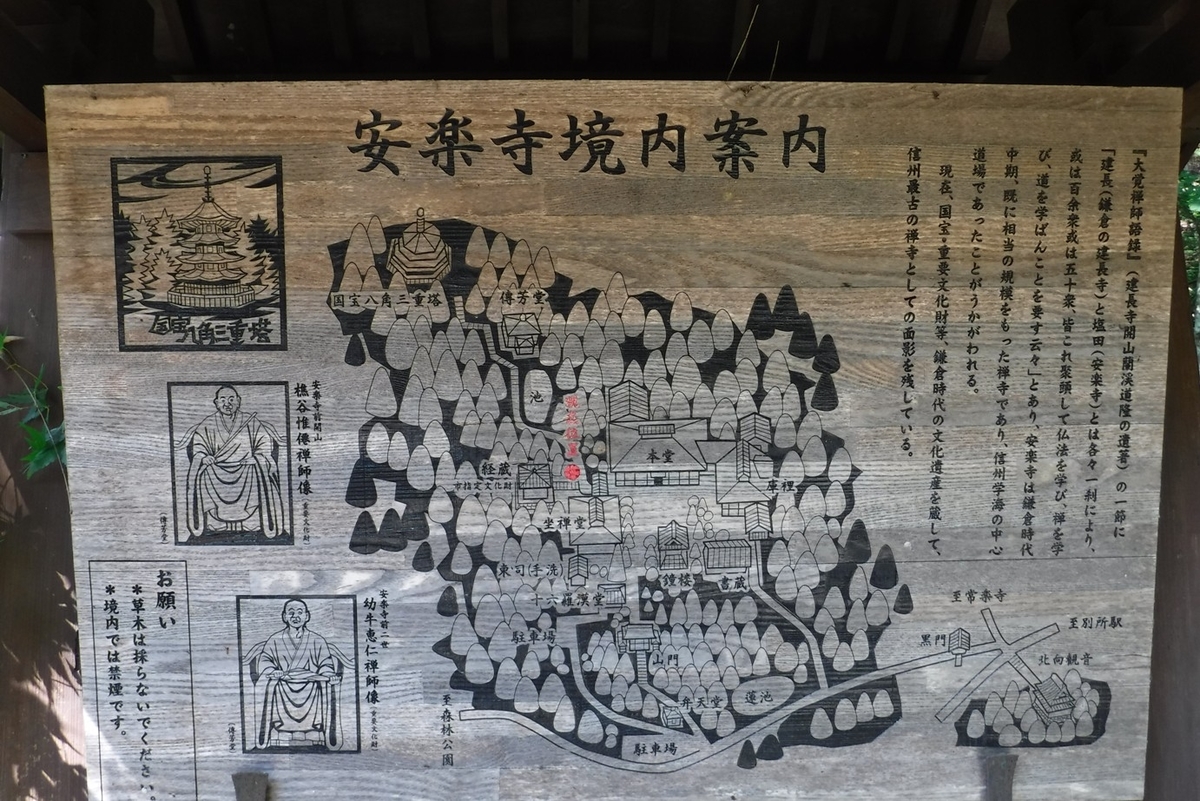 安楽寺境内案内
『大覚禅師語録』(建長寺開山蘭渓道隆の遺著)の一節に
「建長(鎌倉の建長寺)と塩田(安楽寺)とは各々一刹により、
或は百余衆或は五十衆、皆これ聚頭して仏法を学び、禅を学
び、道を学ばんことを要す云々」とあり、安楽寺は鎌倉時代
中期、既に相当の規模をもった禅寺であり、信州学海の中心
道場であったことがうかがわれる。
現在、国宝・重要文化財等、鎌倉時代の文化遺産を蔵して、
信州最古の禅寺としての面影を残している。
国宝八角三重塔
安楽寺前開山
樵谷惟僊禅師像
(重要文化財)
(傳芳堂)
安楽寺前二世
幼牛恵仁禅師像
(重要文化財)
(傳芳堂)
お願い
*草木は採らないでください。
*境内では禁煙です。
国宝八角三重塔
傳芳堂
池
本堂
経蔵
市指定文化財
庫裡
坐禅堂
東司(手洗)
鐘楼
書蔵
十六羅漢堂
駐車場
山門
弁天堂
蓮池
駐車場
至森林公園
黒門
至常楽寺
至別所駅
北向観音